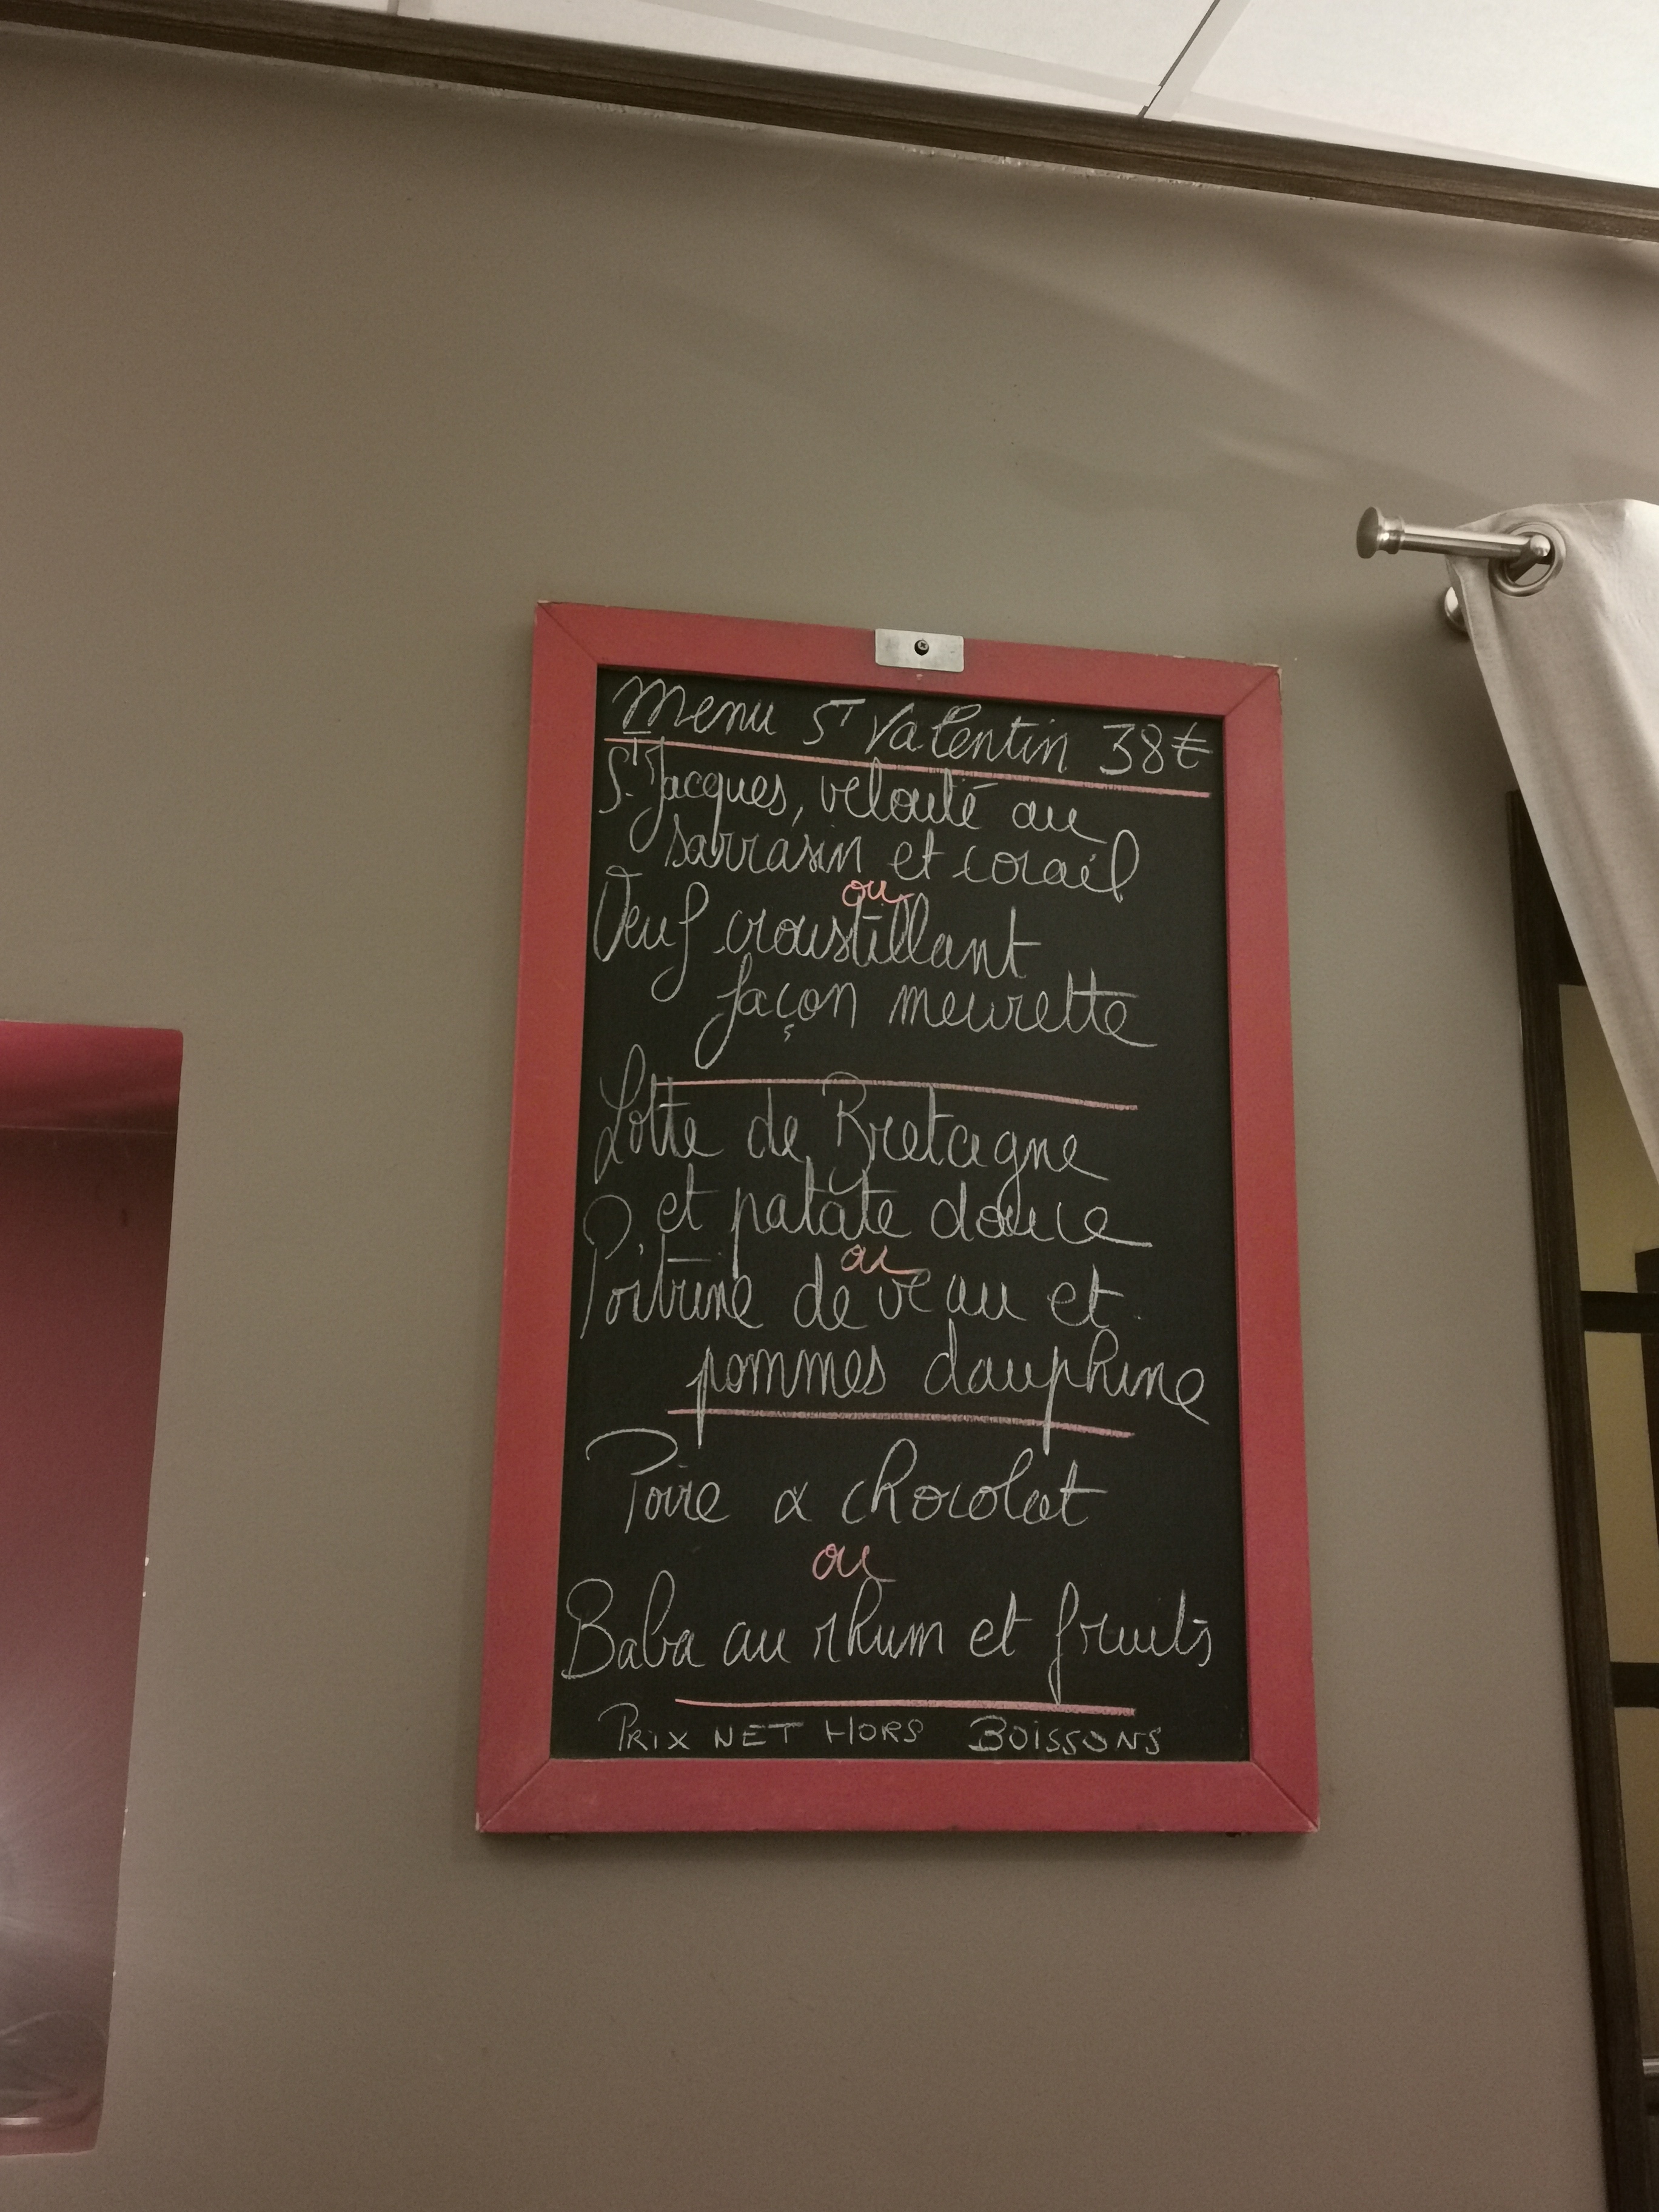 Menu St Valentin 38€
St Jacques, velouté au
sarrasin et corail
ou
Oeuf croustillant
façon meurette
Lotte de Bretagne
et patate douce
ou
Poitrine de veau et
pommes dauphine
Poire & chocolat
ou
Baba au rhum et fruits
PRIX NET HORS BOISSONS